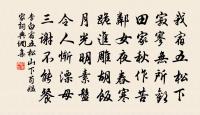 我宿五松下
寂寥無所歡
田家秋作苦
鄰女夜舂寒
跪進雕胡飯
月光明素盤
令人慚漂母
三謝不能餐
李白宿五松山下荀媼
家詞典網集